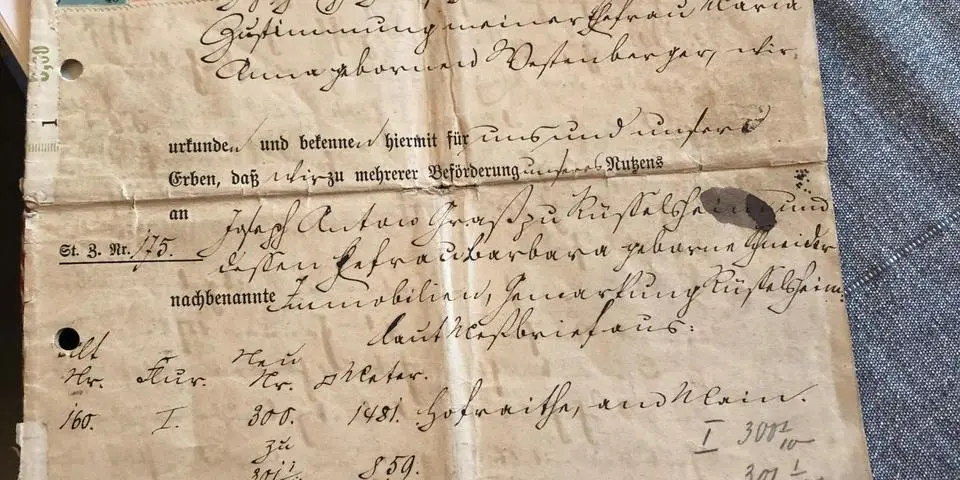 Zustimmung meiner Ehefrau Maria
Anna gebornen Westenberger, wir
urkunden und bekennen hiermit für uns und unsere
Erben, daß wir zu mehrerer Beförderung unseres Nutzens
an Joseph Anton Graß zu Rüsselsheim und
St. Z. Nr. 175. dessen Ehefrau Barbara geborne Schneider
nachbenannte Immobilien, Gemarkung Rüsselsheim
laut Meßbrief aus:
Alt Neu
Nr. Flur. Nr. □ Meter.
160. I. 300. 1481. Hofraithe, am Main.
I 300 1/10
zu
301 1/ 859.
301 1/